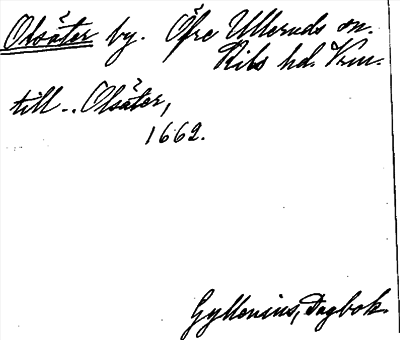 Olsäter by. Öfre Ulleruds sn.
Kils hd. Vrml.
till .. Olsäter,
1662.
Gyllenius, Dagbok.